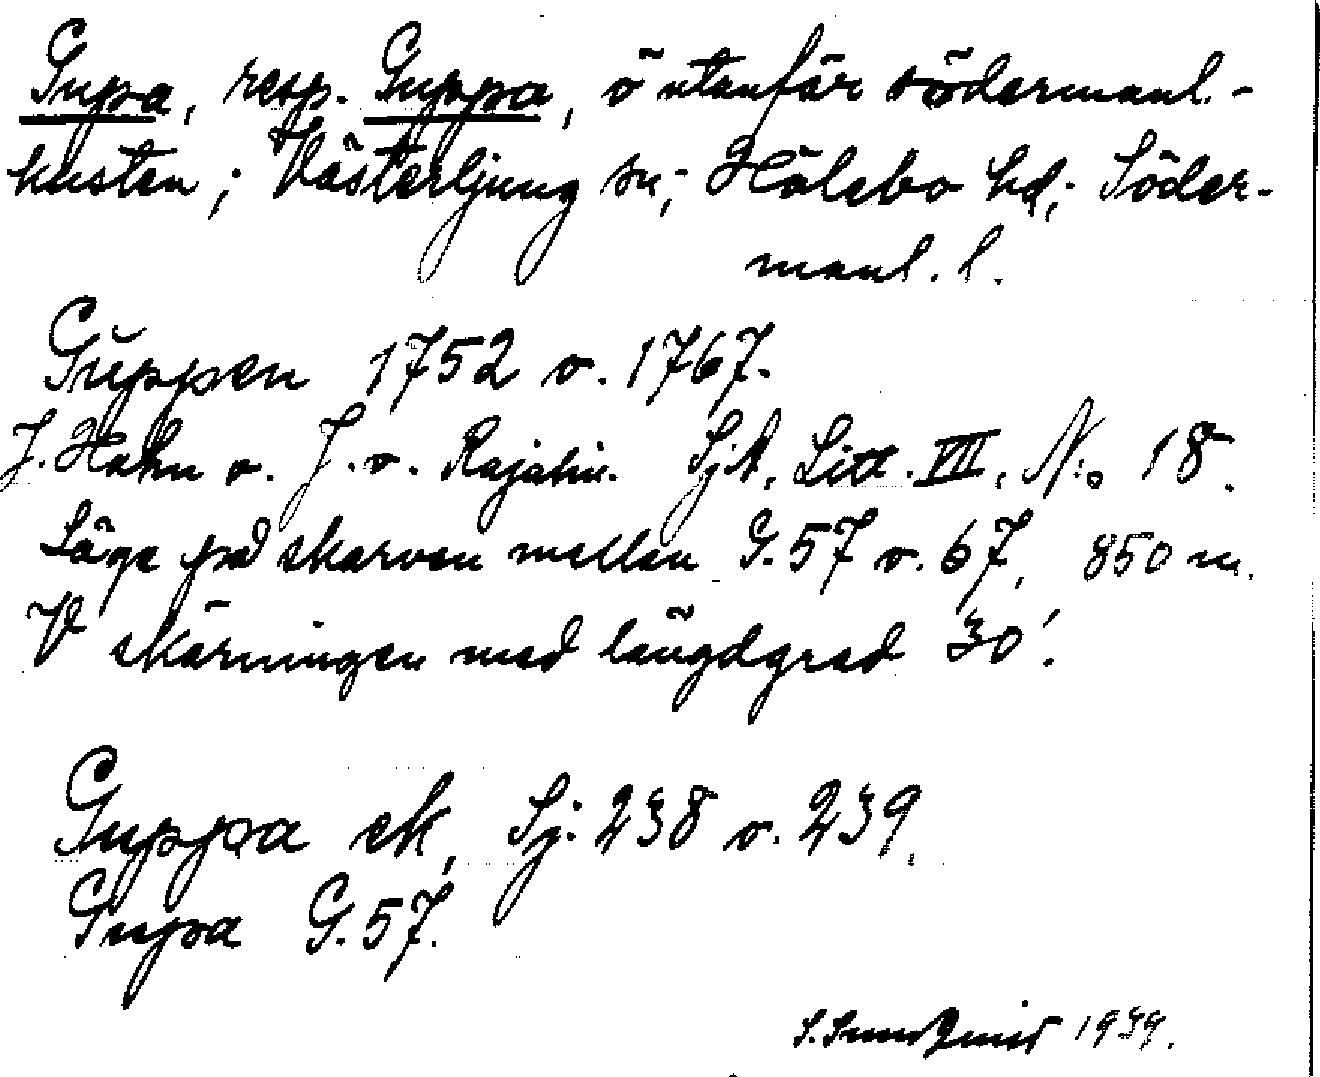 Gupa, resp. Guppa, ö utanför södermanl.-
kusten; Västerljung sn; Hölebo hd; Söder-
manl. l.
Guppen 1752 o. 1767.
J. Hahn o. J. v. Rajalin. SjK, Litt. VII, N:o 18.
Läge på skarven mellan G.57 o. 67, 850 m.
V skärningen med längdgrad 30'.
Guppa sk, Sj. 238 o. 239.
Gupa G.57.
S. Sundqvist 1939.